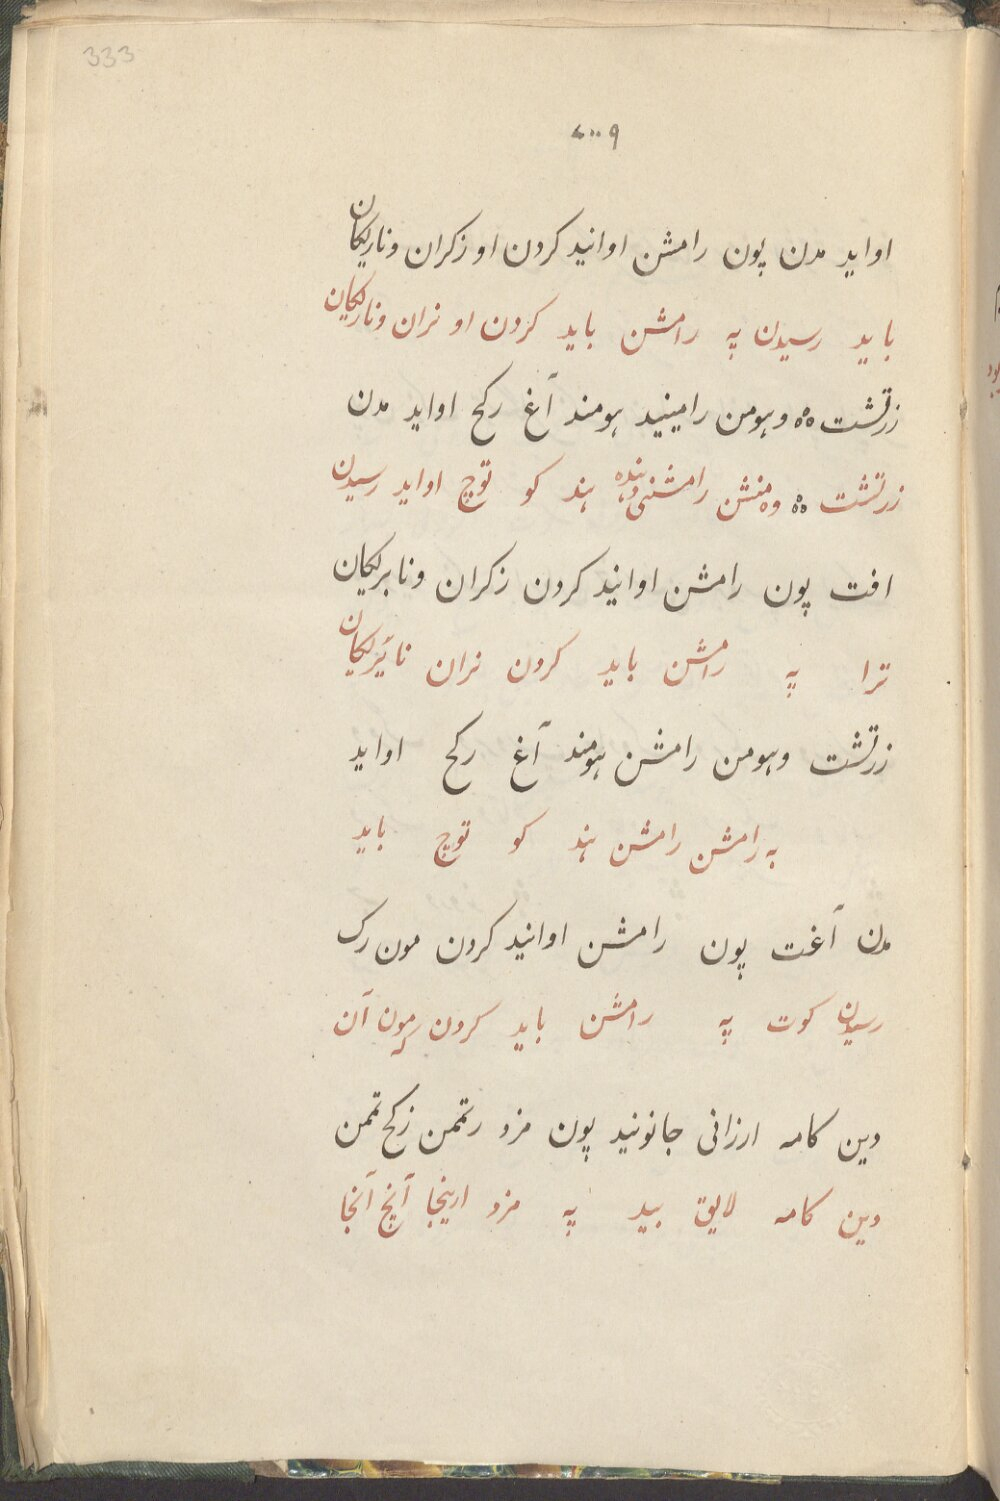 333
اواید مدن پون رامشن اوانید کردن او زکران وناریکان
باید رسیدن په رامشن باید کردن او نران وناریکان
زرتشت ٥٥ وہومن رامینید ہومند آغ رکح اواید مدن
زرتشت ٥٥ وه منشن رامشنی دہندہ ہند کو توچ اواید رسیدن
افت پون رامشن اوانید کردن زکران ونابریکان
ترا په رامشن باید کردن نران نائیریکان
زرتشت وہومن رامشن ہومند آغ رکح اواید
به رامشن رامشن ہند کو توچ باید
مدن آغت پون رامشن اوانید کردن مون رک
رسیدن کوت په رامشن باید کردن مون که آن
دین کامه ارزانی جانونید پون مزد رتمن زکح تمن
دین کامه لایق بید په مزد اینجا آنچ آنجا